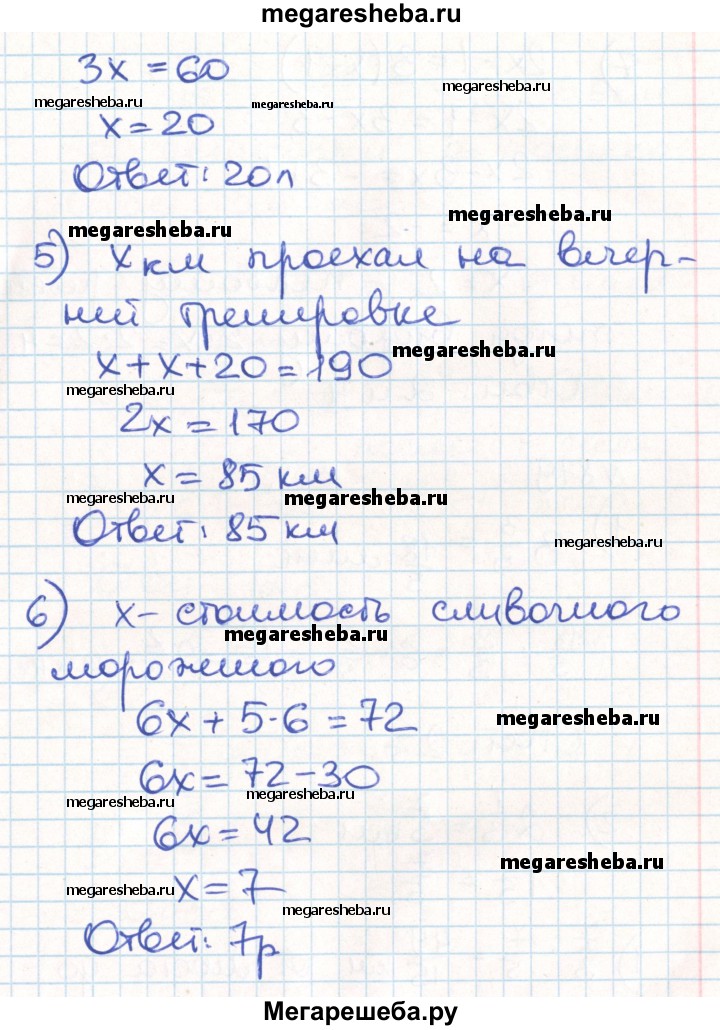 megaresheba.ru
3x = 60
megaresheba.ru megaresheba.ru
x = 20
Ответ: 20л
megaresheba.ru megaresheba.ru
5) x км проехал на вечер-
ней тренировке
x + x + 20 = 190 megaresheba.ru
megaresheba.ru
2x = 170
x = 85 км
megaresheba.ru megaresheba.ru
Ответ: 85 км megaresheba.ru
6) x – стоимость сливочного
megaresheba.ru
мороженого
6x + 5·6 = 72 megaresheba.ru
6x = 72 – 30
megaresheba.ru megaresheba.ru
6x = 42
megaresheba.ru
megaresheba.ru x = 7
megaresheba.ru
Ответ: 7р
Мегарешеба.ру